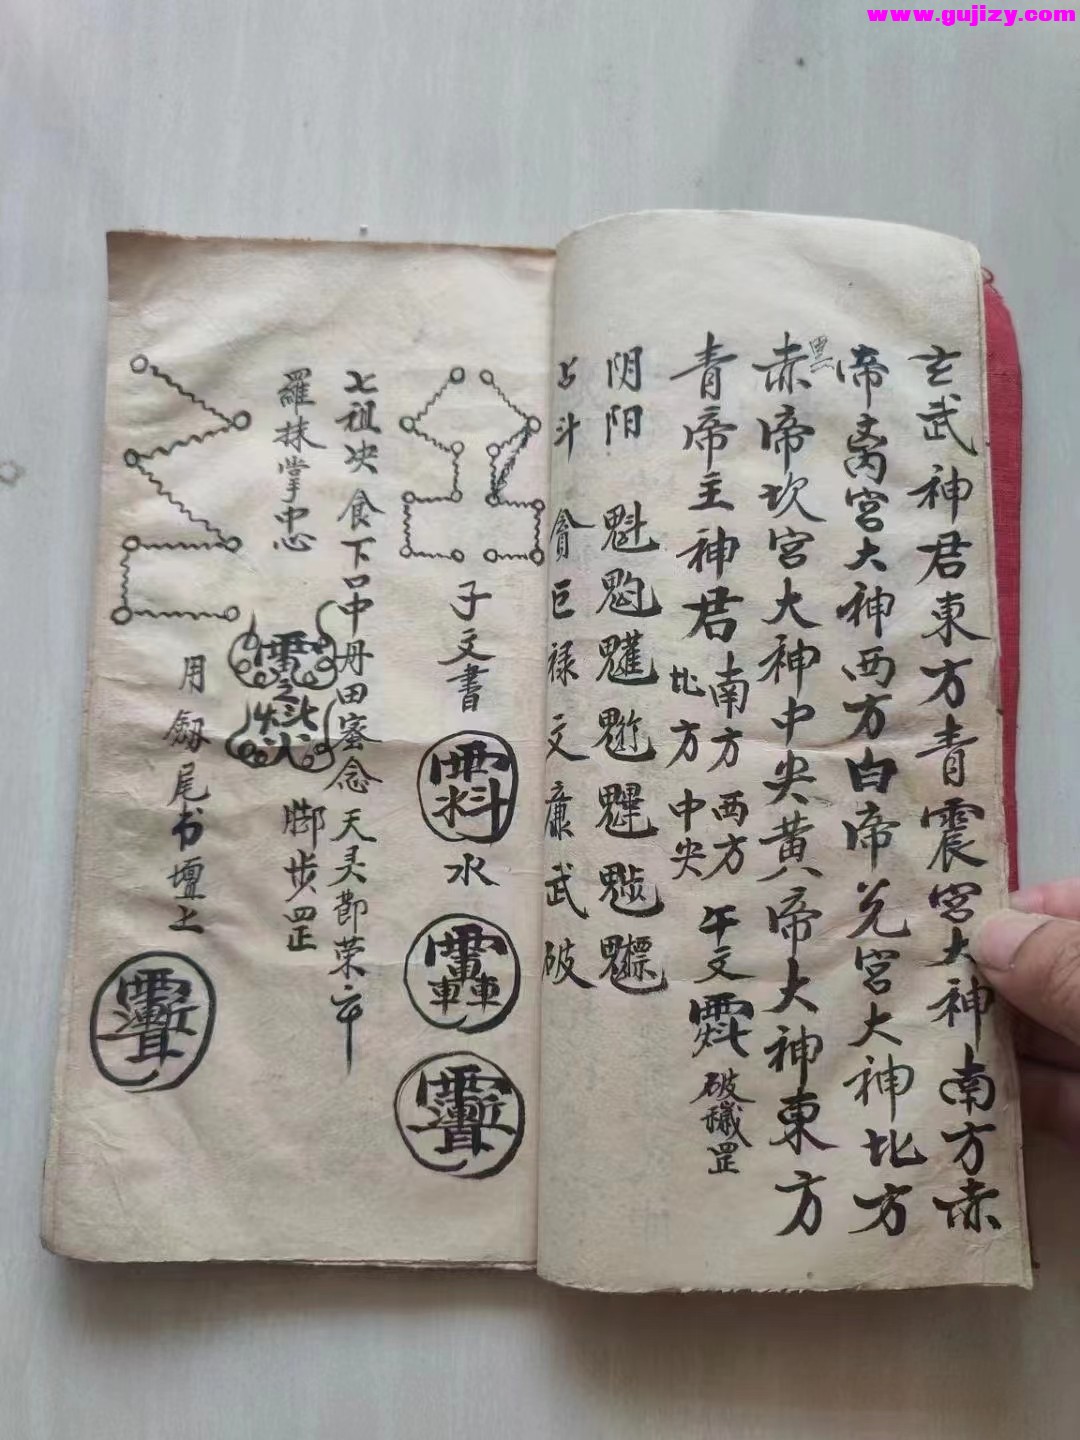 www.gujizy.com
玄武神君東方青震宮大神南方赤
帝离宮大神西方白帝兌宮大神北方
黑
赤帝坎宮大神中央黄帝大神東方
青帝主神君南方西方
北方中央
午文
破穢罡
阴阳 魁䰢魓
斗 貪巨禄文廉武破
子文書
水
七祖决食下口中丹田密念天灵節荣
羅抹掌中心
脚步罡
用劔尾书壇上